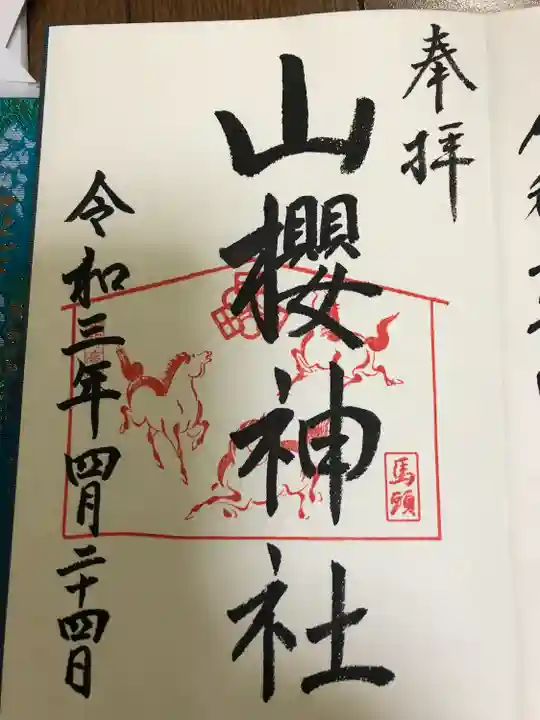 奉拝
山櫻神社
馬頭
令和三年四月二十四日